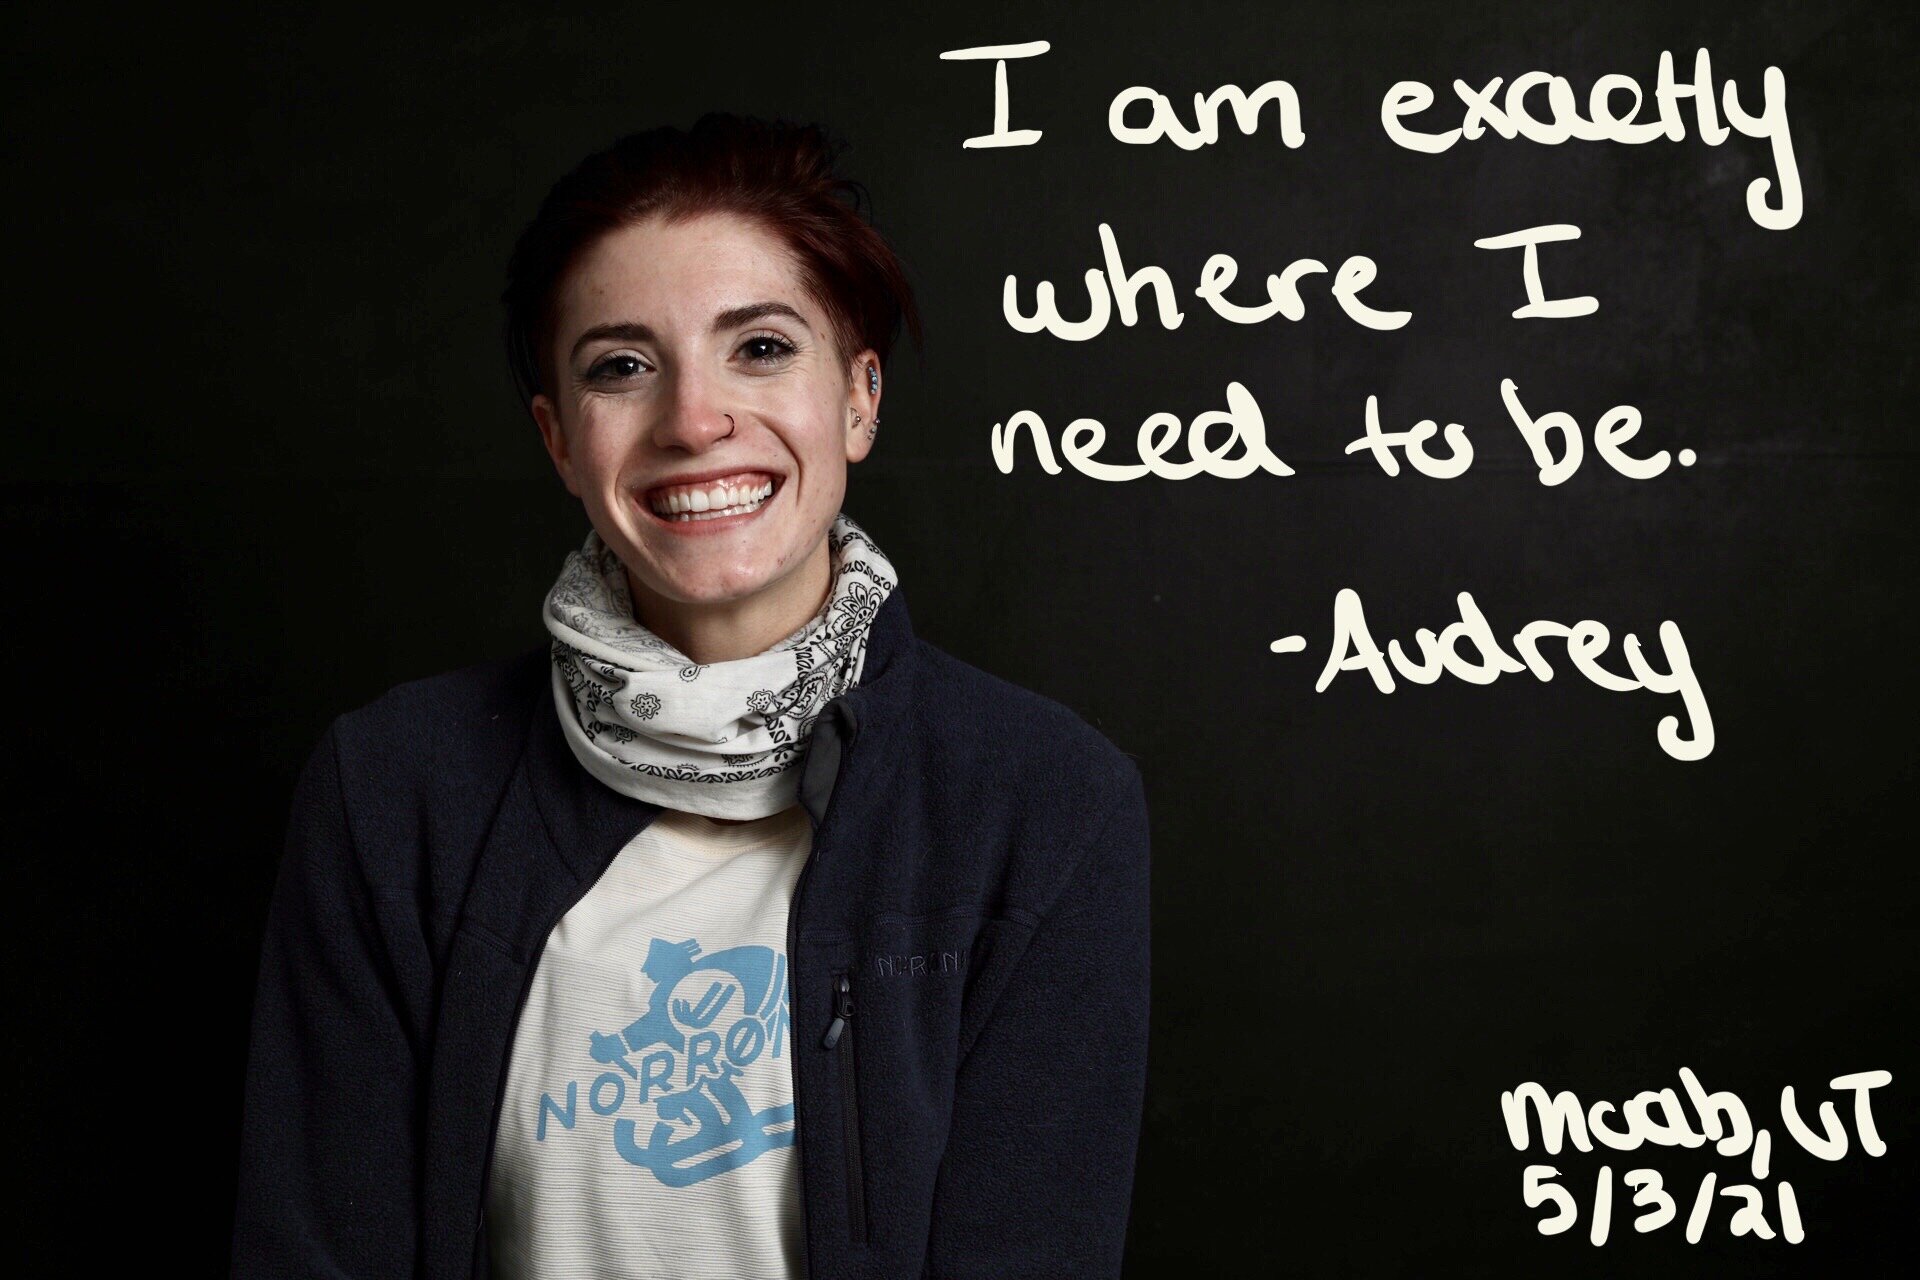 I am exactly
where I
need to be.
-Audrey
NORRØN
NORRØN
Moab, UT
5/3/21